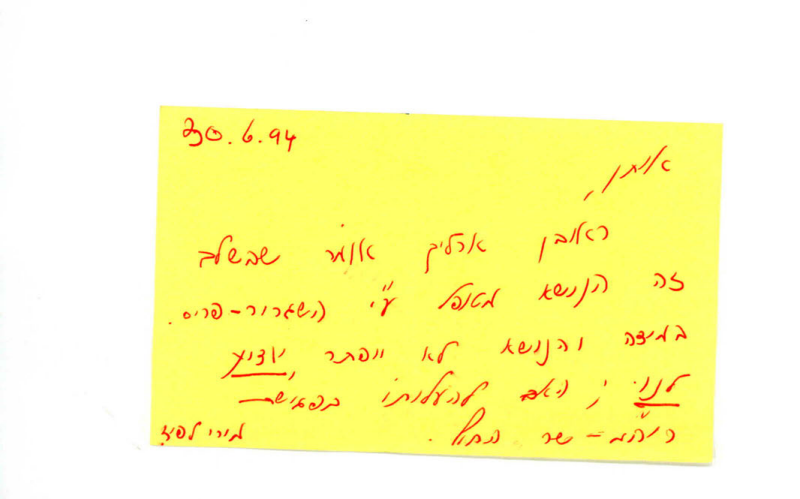 30.6.94
איתן,
ראובן ארליך אומר שבשלב
זה הנושא מטופל ע"י השגרור-פריס.
במידה והנושא לא ייפתר, יודיע
לנו ; האם להעלותו בפגישת
רוה"מ - שר החוץ.
מירי לפיד